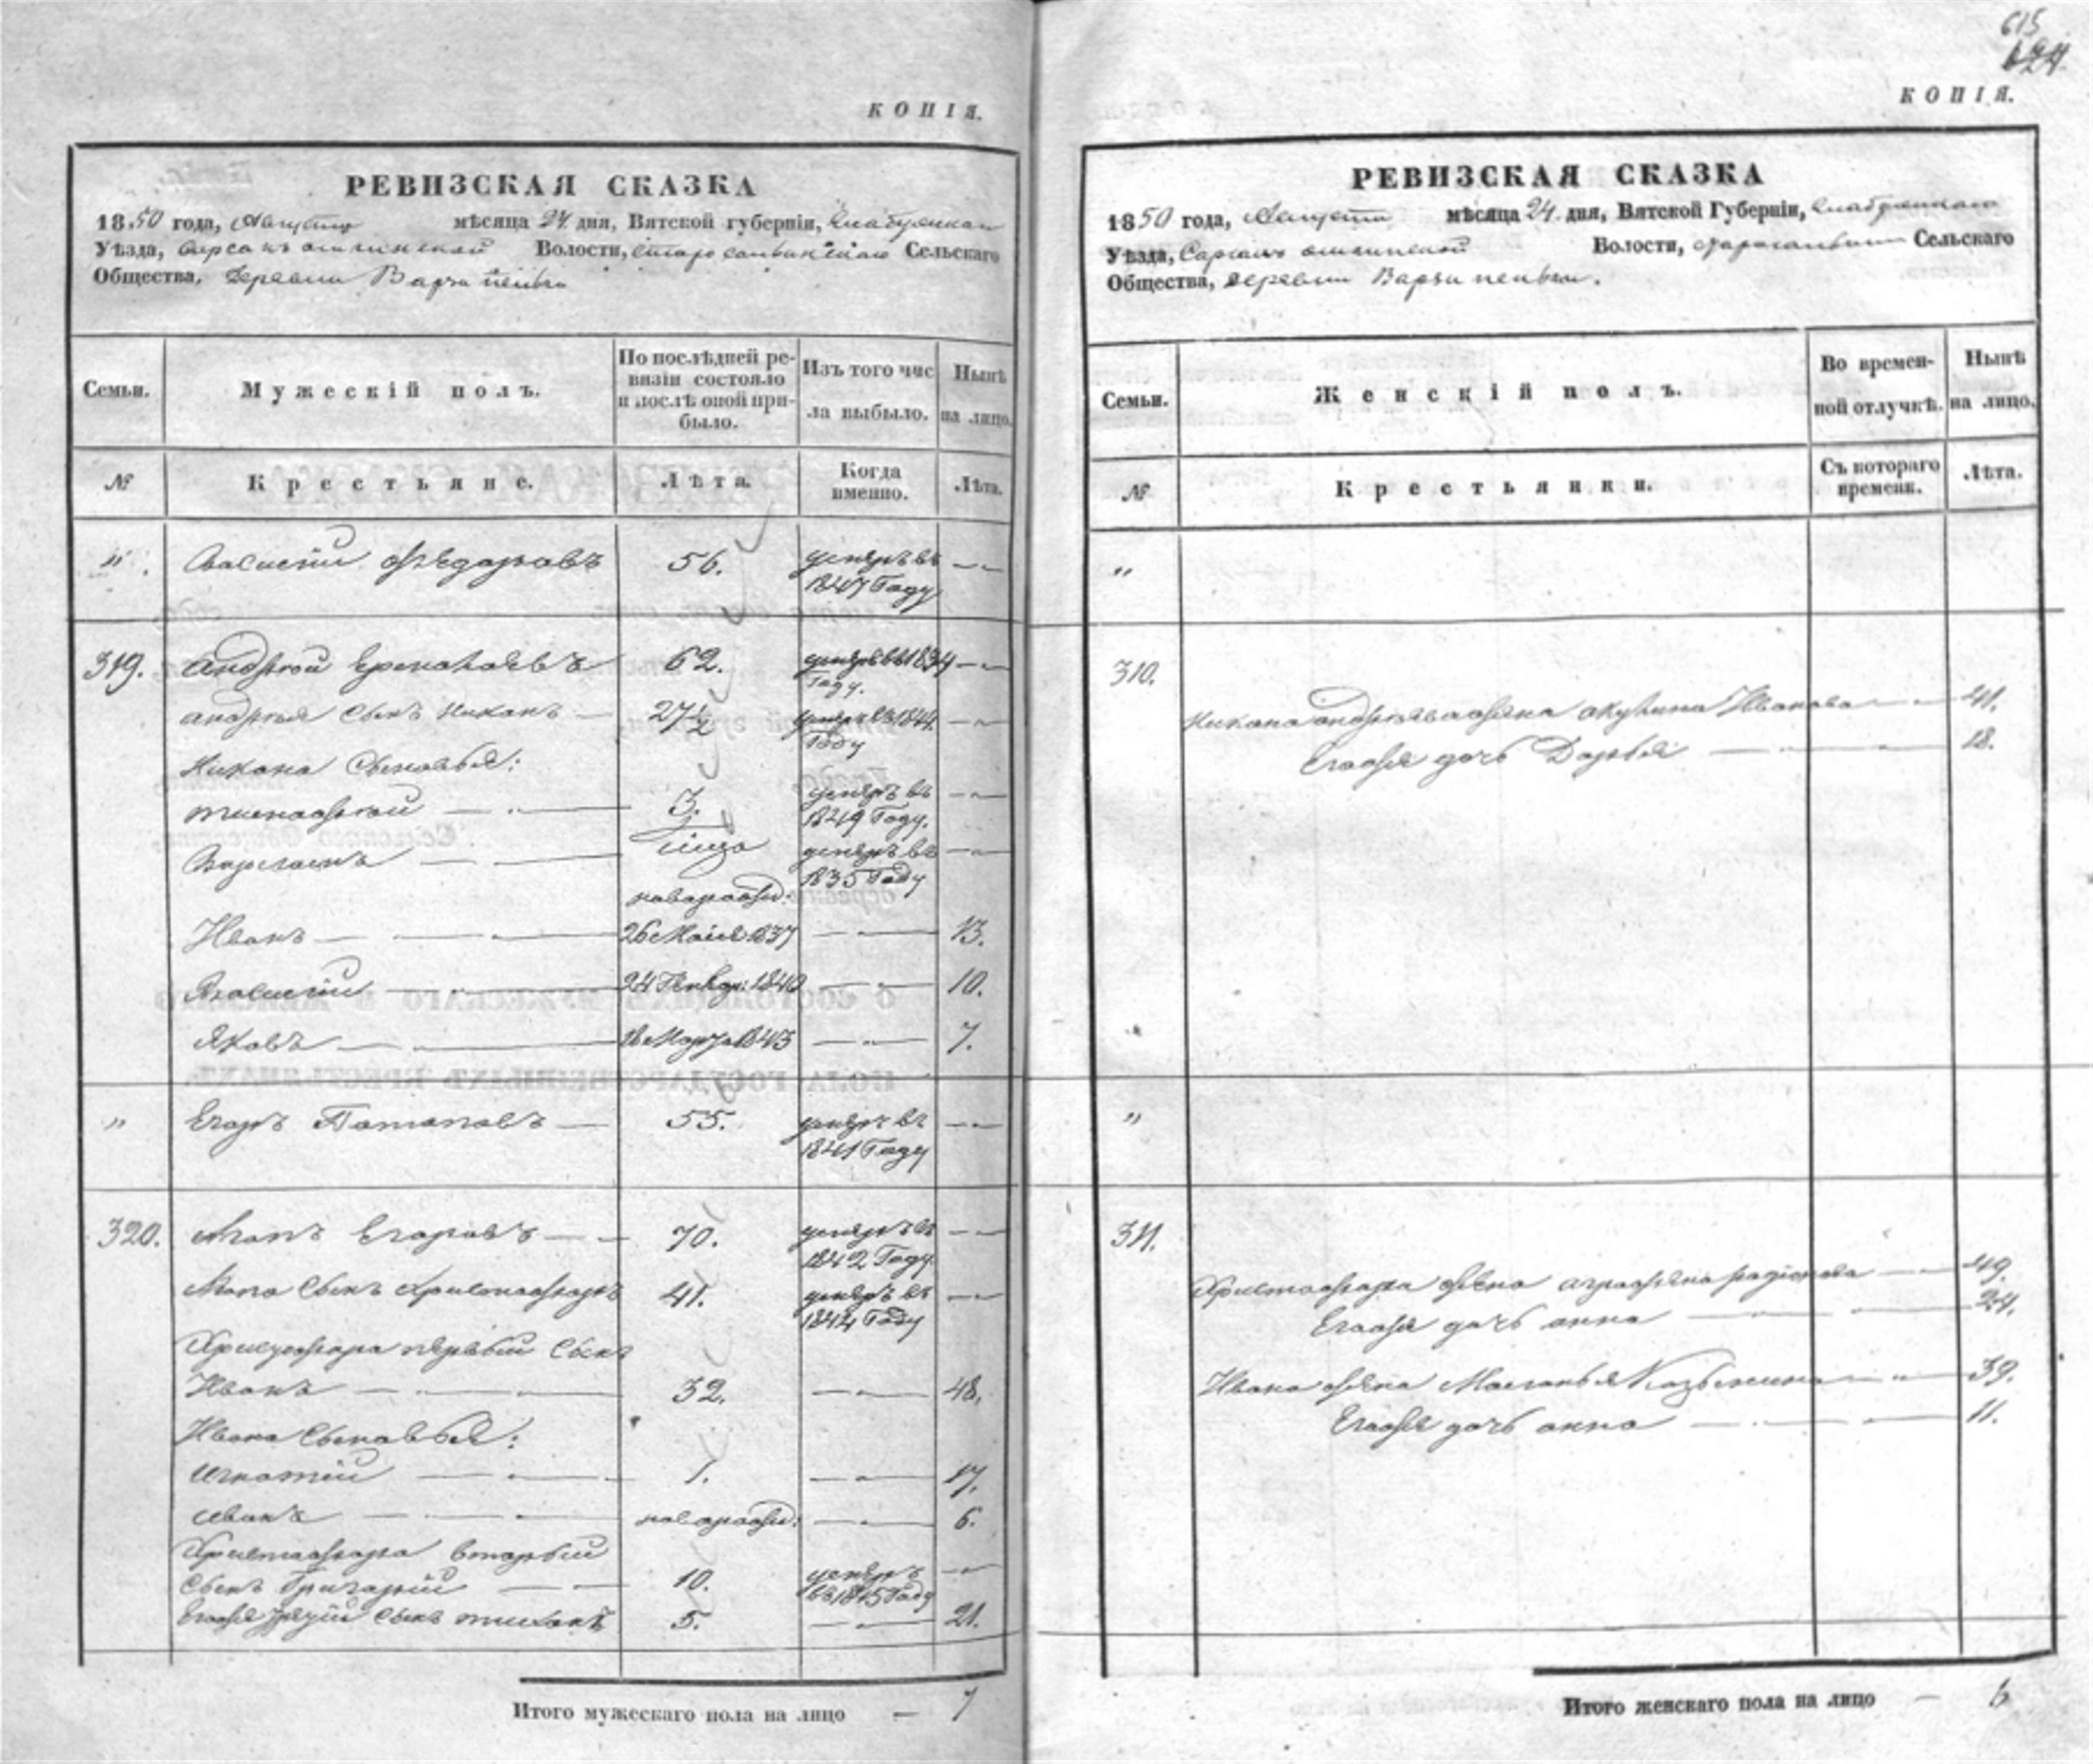 КОПІЯ.
РЕВИЗСКАЯ СКАЗКА
1850 года, Августа мѣсяца 24 дня, Вятской губерніи, Елабужскаго
Уѣзда, Волости, Сельскаго
Общества, деревни Варзи пельги
Семьи.
Мужескій полъ.
По послѣдней ре-
визіи состояло
и послѣ оной при-
было.
Изъ того чис
ла выбыло.
Нынѣ
на лицо.
№
Крестьяне.
Лѣта.
Когда
именно.
Лѣта.
" Василій Федоровъ 56. умеръ въ
1847 Году
319. Андрей 62. умеръ въ 1834
Году.
Андрея сынъ Никонъ 27½ умеръ въ 1844
Году
Никона Сыновья:
Тимофей 3. умеръ въ
1849 Году.
умеръ въ
1835 Году
новорожд:
Иванъ 26 Маія 1837 13.
Василій 24 Генвар: 1840 10.
Яковъ 18 Марта 1843 7.
" Егоръ Потаповъ 55. умеръ въ
1841 Году
320. Агапъ Егоровъ 70. умеръ въ
1842 Году
Агапа Сынъ Христофоръ 41. умеръ въ
1844 Году
Христофора первый Сынъ
Иванъ 32. 48.
Ивана Сыновья:
Игнатій 1. 17.
Иванъ новорожд: 6.
Христофора вторый
Сынъ Григорій 10. умеръ
въ 1845 Году
Егоже третій Сынъ Тихонъ 5. 21.
Итого мужескаго пола на лицо — 7
615
624
КОПІЯ.
РЕВИЗСКАЯ СКАЗКА
1850 года, Августа мѣсяца 24 дня, Вятской Губерніи, Елабужскаго
Уѣзда, Волости, Сельскаго
Общества, деревни Варзи пельги.
Семьи.
Женскій полъ.
Во времен-
ной отлучкѣ.
Нынѣ
на лицо.
№
Крестьянки.
Съ котораго
времени.
Лѣта.
"
310.
Никона Андреева жена Акулина Иванова 41.
Егоже дочь Дарья 18.
"
311.
Христофора жена Аграфена Радіонова 49.
Егоже дочь Анна 24.
Ивана жена Маланья Козьмина 39.
Егоже дочь Анна 11.
Итого женскаго пола на лицо — 6